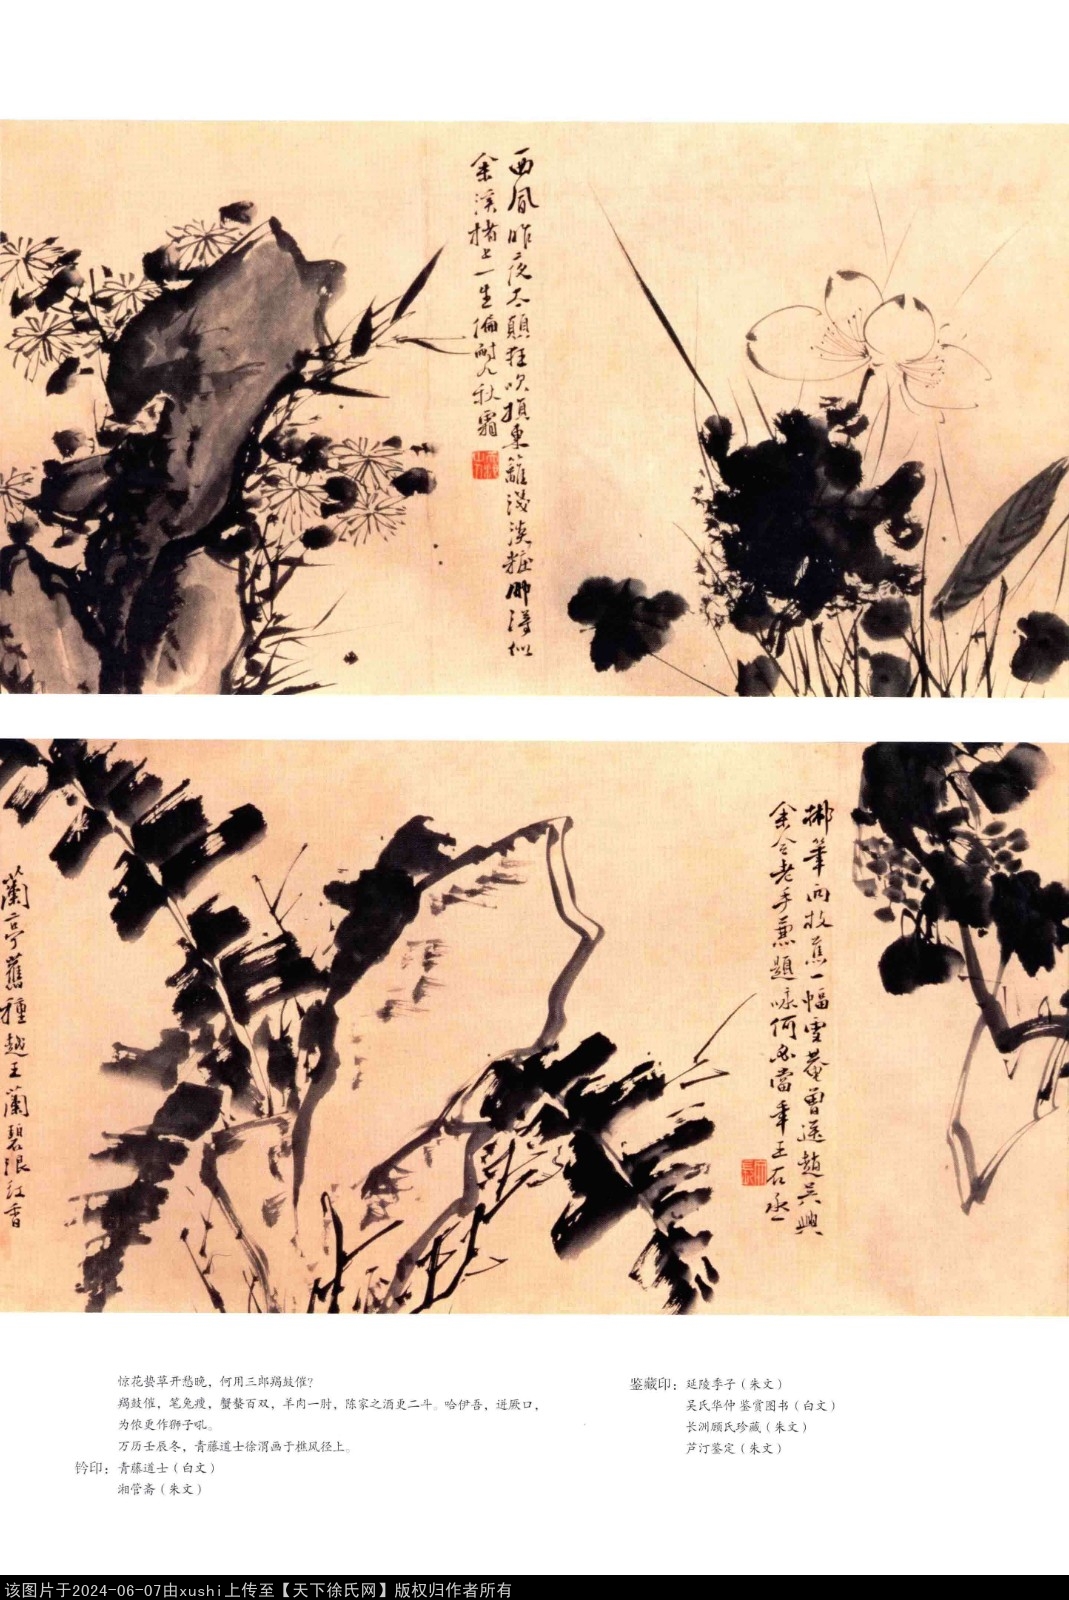 西風昨夜太顛狂吹損東籬淺淡粧那得似
余溪楮上一生偏耐九秋霜
擲筆雨牧蕉一幅雪菴曾遺趙吴興
余今老手兼題咏何必當年王右丞
蘭亭舊種越王蘭碧浪紅香
惊花蛰草开愁晚，何用三郎羯鼓催？
羯鼓催，笔兔瘦，蟹螯百双，羊肉一肘，陈家之酒更二斗。哈伊吾，迸厥口，
为侬更作狮子吼。
万历壬辰冬，青藤道士徐渭画于樵风径上。
钤印：青藤道士（白文）
湘管斋（朱文）
鉴藏印：延陵季子（朱文）
吴氏华仲 鉴赏图书（白文）
长洲顾氏珍藏（朱文）
芦汀鉴定（朱文）
该图片于2024-06-07由xushi上传至【天下徐氏网】版权归作者所有